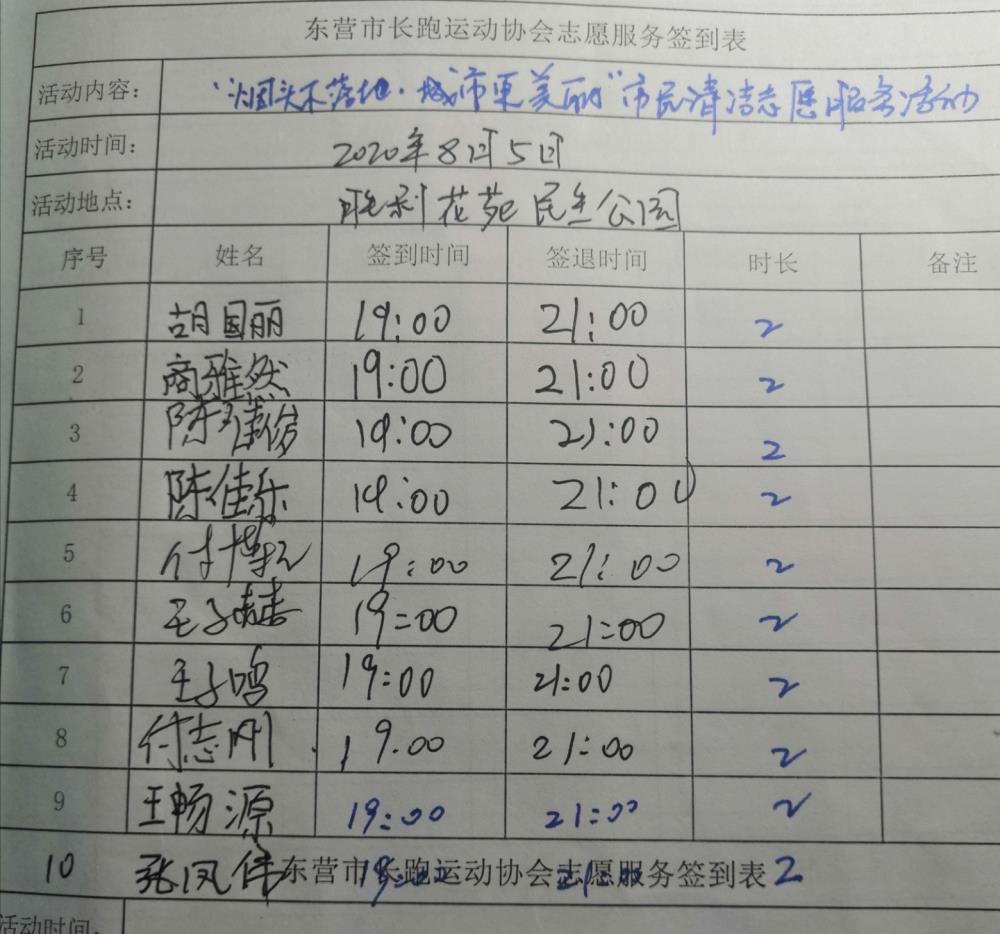 东营市长跑运动协会志愿服务签到表
活动内容： “烟头不落地·城市更美丽”市民清洁志愿服务活动
活动时间： 2020年8月5日
活动地点： 胜利花苑民生公园
序号 姓名 签到时间 签退时间 时长 备注
1 胡国丽 19:00 21:00 2
2 商雅然 19:00 21:00 2
3 陈 19:00 21:00 2
4 陈佳乐 19:00 21:00 2
5 付博 19:00 21:00 2
6 王子赫 19:00 21:00 2
7 王子鸣 19:00 21:00 2
8 付志刚 19.00 21:00 2
9 王畅源 19:00 21:00 2
10 张凤伟 19:00 21:00 2
东营市长跑运动协会志愿服务签到表
活动时间：